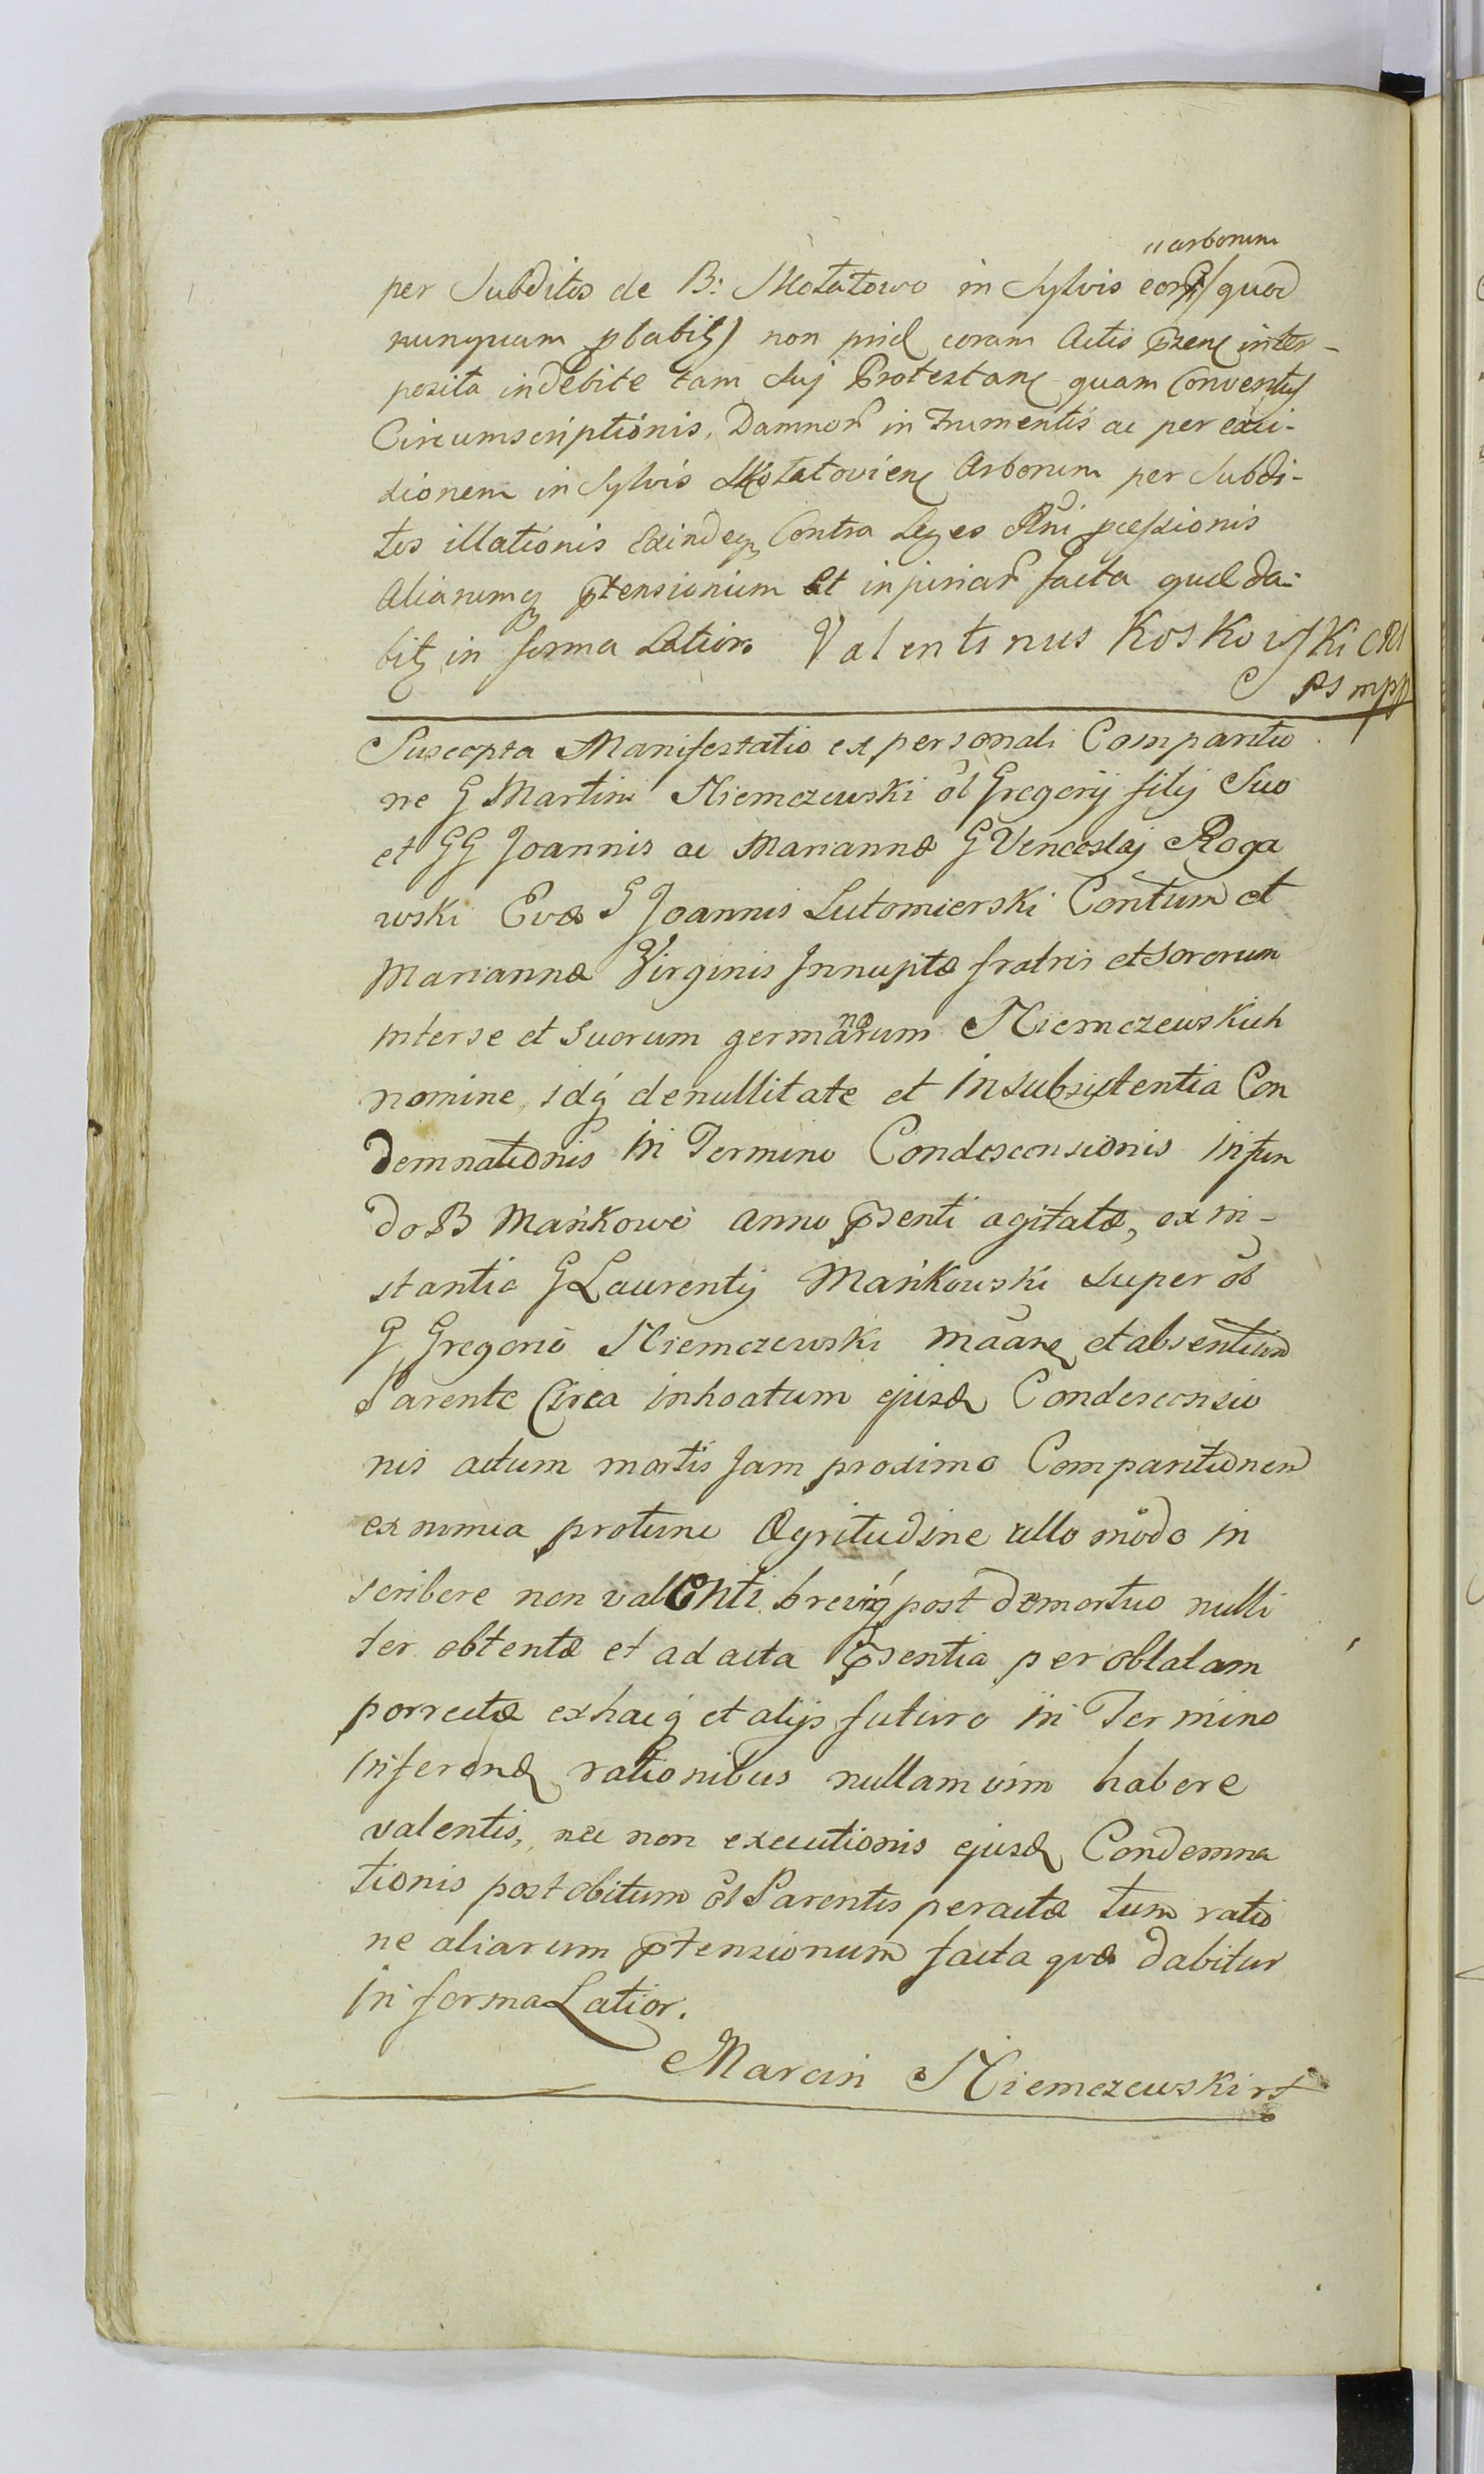 "arborum
per Subditos de B: Mołatowo in Sylvis eor/quod
nunquam pbabitʒ) non prid coram Actis psenʒ inter-
posita indebite tam Suj Protestanʒ quam Conventus
Circumscriptionis, Damnor in frumentis ac per exci-
sionem in Sylvis Mołatovienʒ Arborum per Subdi-
tos illationis Exindeqʒ Contra Leges Rni pcessionis
Aliarumqʒ ptensionum et injuriar facta quæ da-
bitʒ in forma Latiori Valentinus Koskowski CRL
PS mpp
Suscepta Manifestatio ex personali Comparitio
ne G Martini Niemczewski ol Gregorij filij Suo
et GG Joannis ac Mariannæ G Venceslaj Roga
wski Evæ G Joannis Lutomierski Contum et
Mariannæ Virginis Innuptæ fratris et Sororum
interse et Suorum germanorum Niemczewskich
nomine, idq́ de nullitate et insubsistentia Con
demnationis in Termino Condescensionis in fun
do B Mańkowo anno psenti agitatæ, ex in-
stantia G Laurentij Mańkowski super ol
G Gregorio Niemczewski et absentium
Parente Circa inhoatum ejusd Condescensio
nis actum mortis jam proximo Comparitionem
ex nimia protunc Ægritudine ullo modo in
scribere non valenti breviq́ post demortuo nulli
ter obtentæ et ad acta psentia per oblatam
porrectæ ex hacq́ et alijs futuro in Termino
inferend rationibus nullam vim habere
valentis, nec non executionis ejusd Condemna
tionis post obitum ol Parentis peractæ tum ratio
ne aliarum ptensionum facta quæ dabitur
in forma Latior.
Marcin Niemczewski